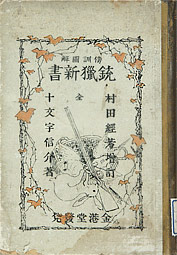 傍訓圖解
銃獵新書
村田經芳增訂
全
十文字信介著
金港堂發兌